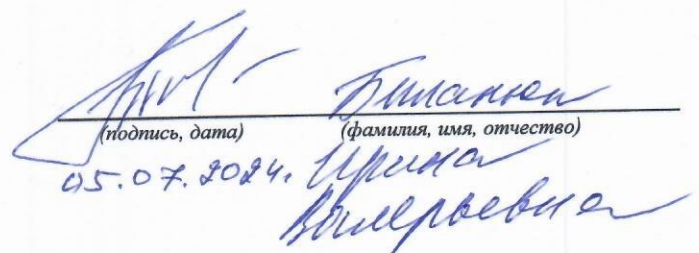 Биланюк
(подпись, дата) (фамилия, имя, отчество)
05.07.2024. Ирина
Валерьевна